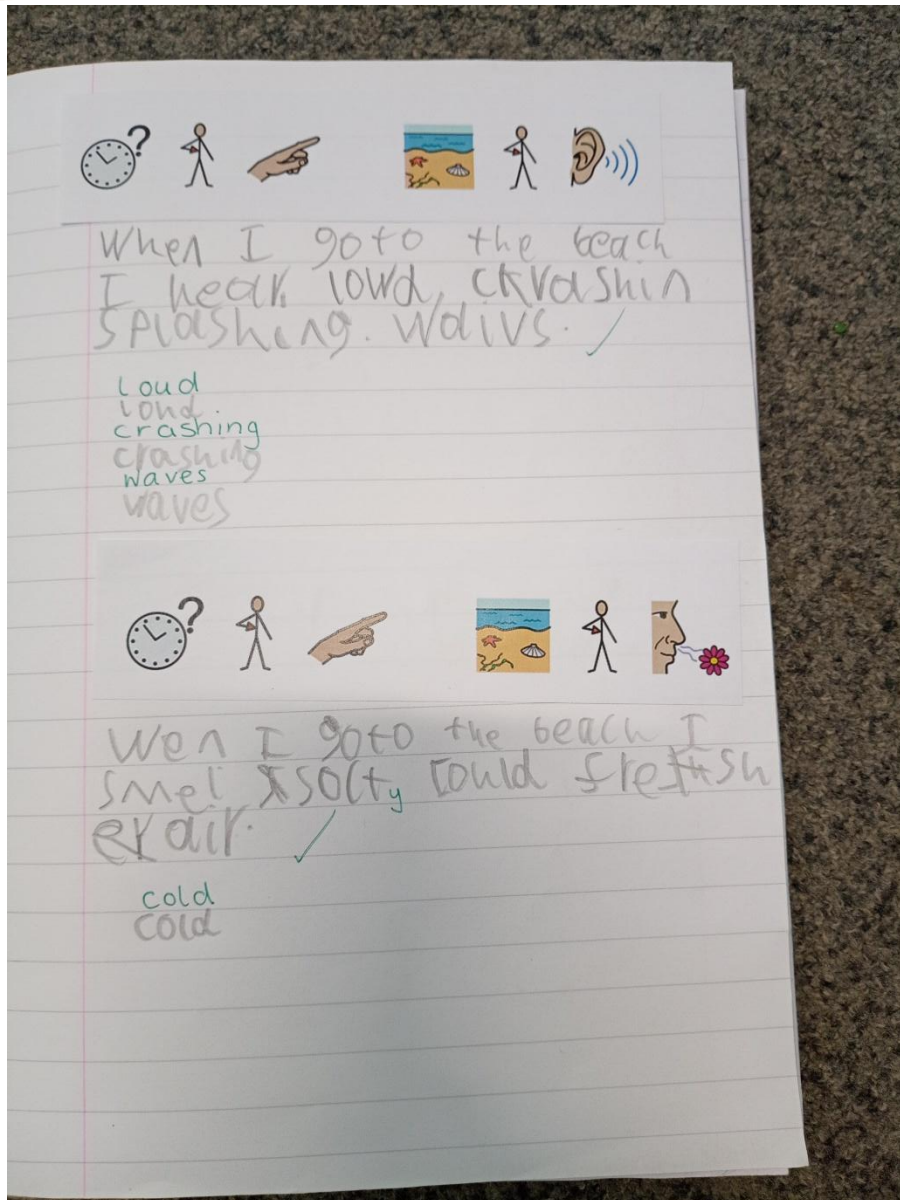 When I goto the beach
I hear lowd, ckrashin
splashing. waivs.
loud
loud.
crashing
crashing
waves
waves
Wen I goto the beach I
smel solty could fresh
air.
cold
cold